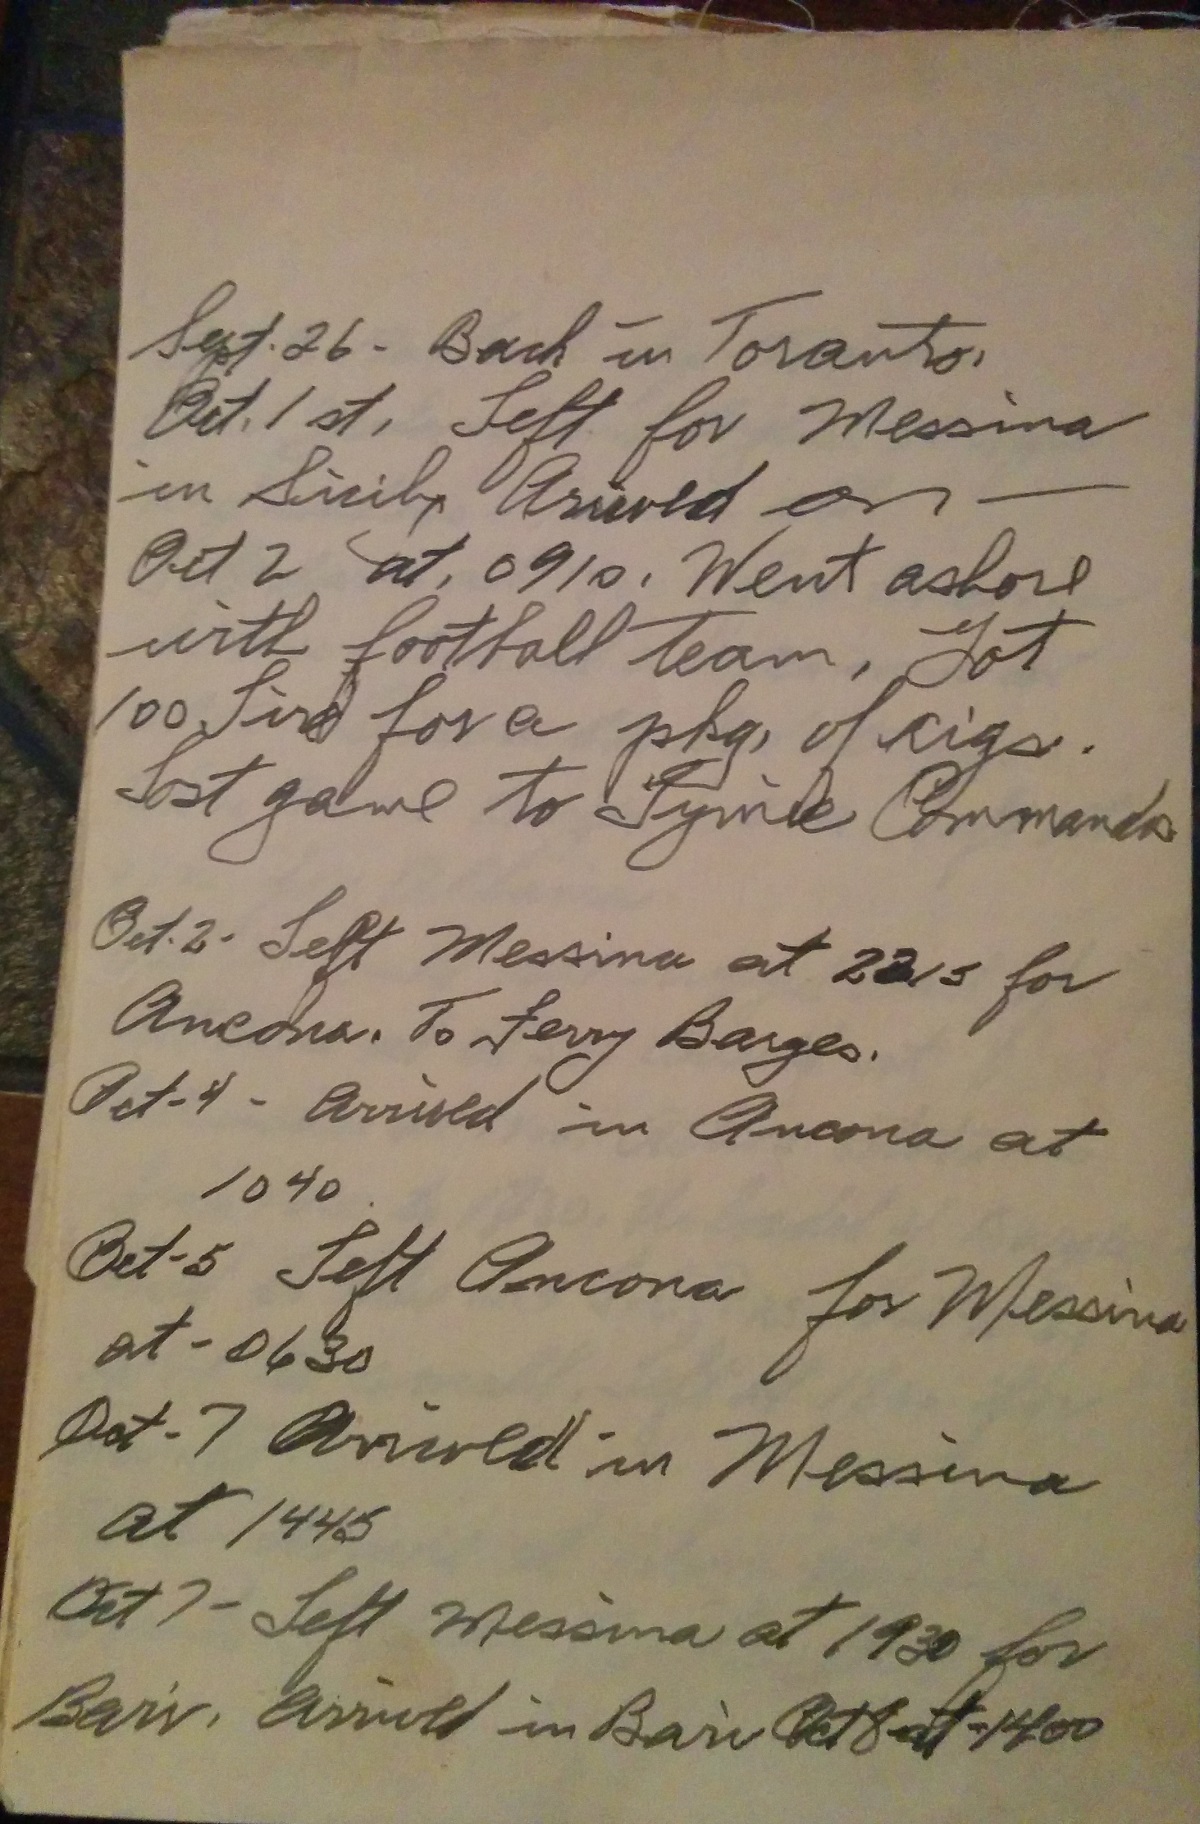 Sept. 26 - Back in Toranto.
Oct. 1 st, Left for Messina
in Sicily. Arrived on —
Oct 2 at, 0910. Went ashore
with football team, Got
100 Lira for a pkg, of cigs.
Lost game to Commando
Oct. 2 - Left Messina at 2215 for
Ancona. To Ferry Barges.
Oct - 4 - arrived in Ancona at
1040.
Oct - 5 Left Ancona for Messina
at - 0630
Oct - 7 Arrived in Messina
at 1445
Oct 7 - Left Messina at 1930 for
Bari. arrived in Bari Oct 8 at - 1400